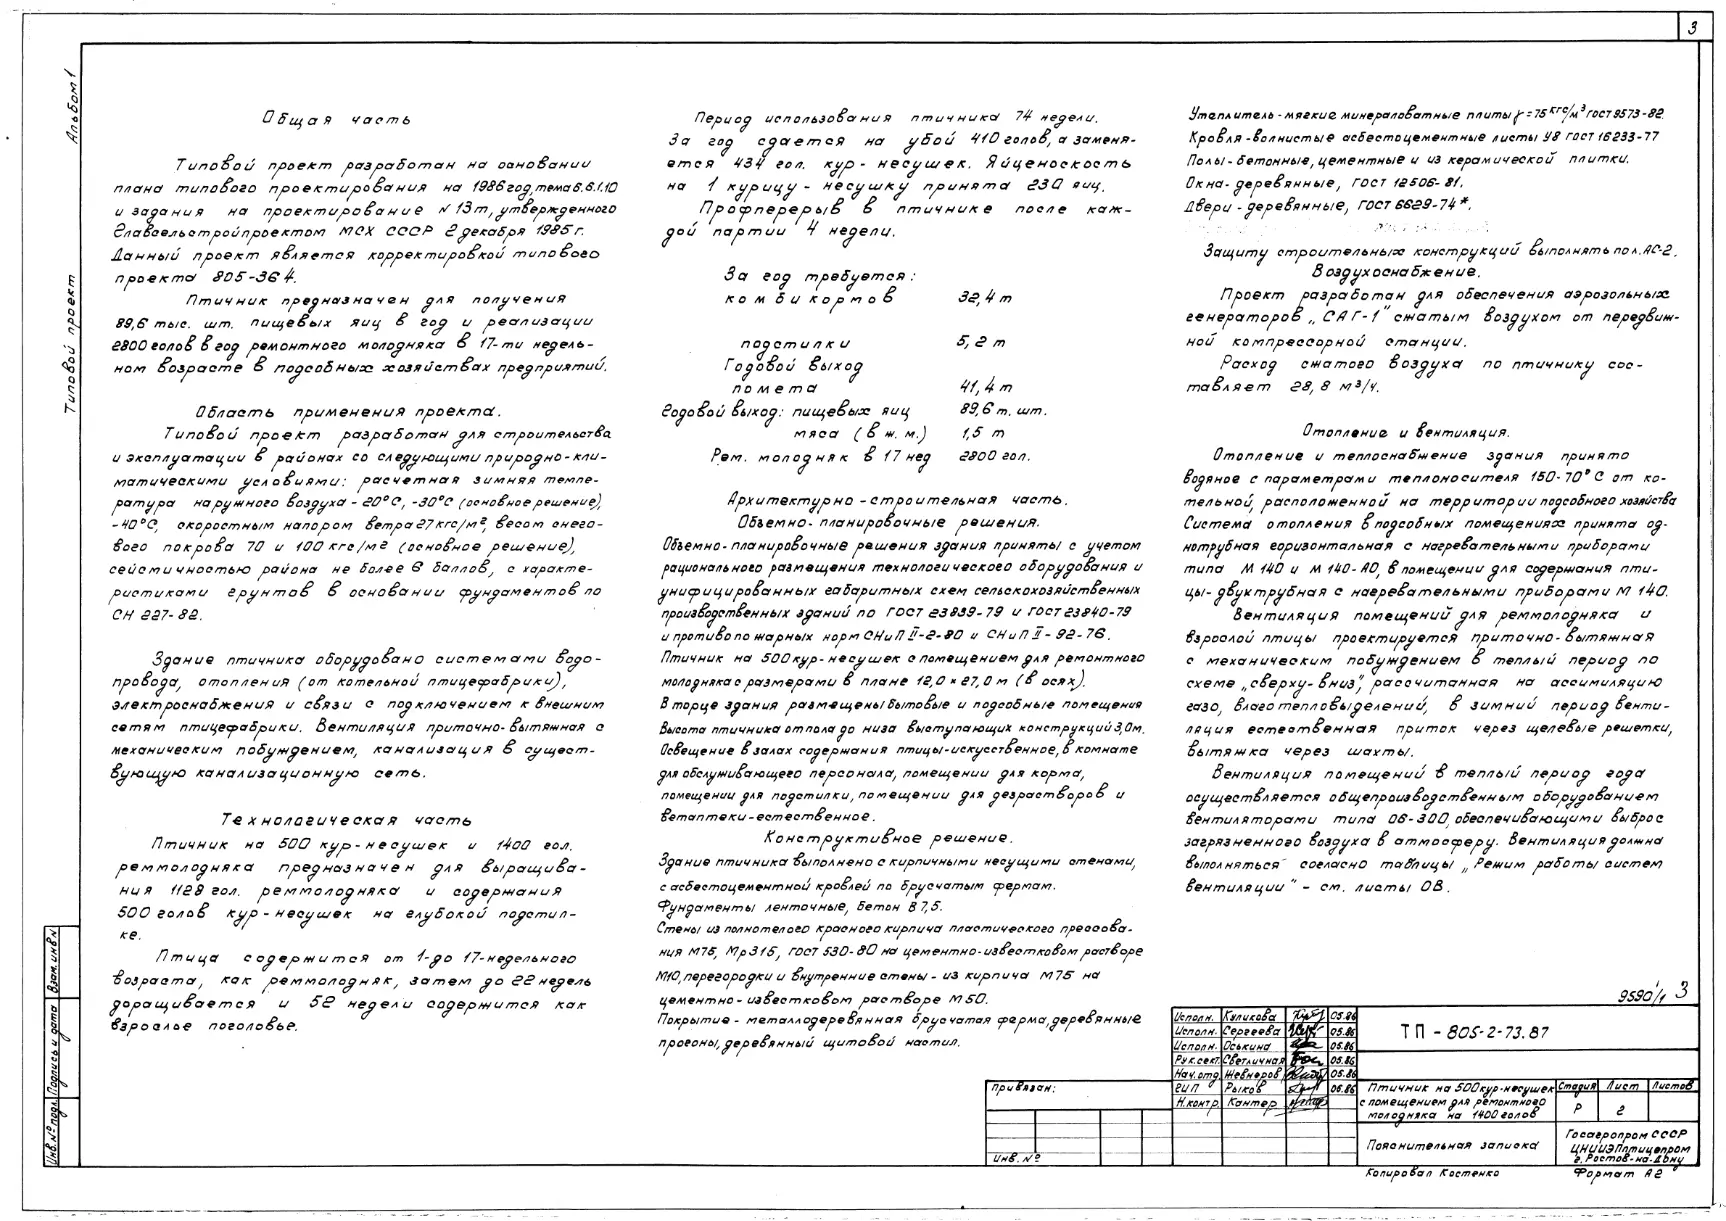 3
Альбом 1
Типовой проект
Общая часть
Типовой проект разработан на основании
плана типового проектирования на 1986 год, тема 6.6.1.10
и задания на проектирование N 13т, утвержденного
Главсельстройпроектом МСХ СССР 2 декабря 1985 г.
Данный проект является корректировкой типового
проекта 805-364.
Птичник предназначен для получения
89,6 тыс. шт. пищевых яиц в год и реализации
2800 голов в год ремонтного молодняка в 17-ти недель-
ном возрасте в подсобных хозяйствах предприятий.
Область применения проекта.
Типовой проект разработан для строительства
и эксплуатации в районах со следующими природно-кли-
матическими условиями: расчетная зимняя темпе-
ратура наружного воздуха - 20°С, -30°С (основное решение),
-40°С, скоростным напором ветра 27 кгс/м², весом снего-
вого покрова 70 и 100 кгс/м² (основное решение),
сейсмичностью района не более 6 баллов, с характе-
ристиками грунтов в основании фундаментов по
СН 227-82.
Здание птичника оборудовано системами водо-
провода, отопления (от котельной птицефабрики),
электроснабжения и связи с подключением к внешним
сетям птицефабрики. Вентиляция приточно-вытяжная с
механическим побуждением, канализация в сущест-
вующую канализационную сеть.
Технологическая часть
Птичник на 500 кур-несушек и 1400 гол.
реммолодняка предназначен для выращива-
ния 1128 гол. реммолодняка и содержания
500 голов кур-несушек на глубокой подстил-
ке.
Птица содержится от 1-до 17-недельного
возраста, как реммолодняк, затем до 22 недель
доращивается и 52 недели содержится как
взрослое поголовье.
Период использования птичника 74 недели.
За год сдается на убой 410 голов, а заменя-
ется 434 гол. кур-несушек. Яйценоскость
на 1 курицу-несушку принята 230 яиц.
Профперерыв в птичнике после каж-
дой партии 4 недели.
За год требуется:
комбикормов 32,4 т
подстилки 5,2 т
Годовой выход
помета 41,4 т
Годовой выход: пищевых яиц 89,6 т. шт.
мяса (в ж. м.) 1,5 т
Рем. молодняк в 17 нед 2800 гол.
Архитектурно-строительная часть.
Объемно-планировочные решения.
Объемно-планировочные решения здания приняты с учетом
рационального размещения технологического оборудования и
унифицированных габаритных схем сельскохозяйственных
производственных зданий по ГОСТ 23839-79 и ГОСТ 23840-79
и противопожарных норм СНиП II-2-80 и СНиП II-92-76.
Птичник на 500 кур-несушек с помещением для ремонтного
молодняка с размерами в плане 12,0 × 27,0 м (в осях).
В торце здания размещены бытовые и подсобные помещения
Высота птичника от пола до низа выступающих конструкций 3,0м.
Освещение в залах содержания птицы-искусственное, в комнате
для обслуживающего персонала, помещении для корма,
помещении для подстилки, помещении для дезрастворов и
ветаптеки-естественное.
Конструктивное решение.
Здание птичника выполнено с кирпичными несущими стенами,
с асбестоцементной кровлей по брусчатым фермам.
Фундаменты ленточные, бетон В 7,5.
Стены из полнотелого красного кирпича пластического прессова-
ния М75, Мрз15, ГОСТ 530-80 на цементно-известковом растворе
М10, перегородки и внутренние стены - из кирпича М75 на
цементно-известковом растворе М50.
Покрытие - металлодеревянная брусчатая ферма, деревянные
прогоны, деревянный щитовой настил.
Утеплитель - мягкие минераловатные плиты γ=75 кгс/м³ ГОСТ 9573-82
Кровля-волнистые асбестоцементные листы У8 ГОСТ 16233-77
Полы-бетонные, цементные и из керамической плитки.
Окна-деревянные, ГОСТ 12506-81.
Двери - деревянные, ГОСТ 6629-74*.
Защиту строительных конструкций выполнять по л. АС-2.
Воздухоснабжение.
Проект разработан для обеспечения аэрозольных
генераторов „САГ-1" сжатым воздухом от передвиж-
ной компрессорной станции.
Расход сжатого воздуха по птичнику сос-
тавляет 28,8 м³/ч.
Отопление и вентиляция.
Отопление и теплоснабжение здания принято
водяное с параметрами теплоносителя 150-70°С от ко-
тельной, расположенной на территории подсобного хозяйства
Система отопления в подсобных помещениях принята од-
нотрубная горизонтальная с нагревательными приборами
типа М 140 и М 140-АО, в помещении для содержания пти-
цы-двухтрубная с нагревательными приборами М 140.
Вентиляция помещений для реммолодняка и
взрослой птицы проектируется приточно-вытяжная
с механическим побуждением в теплый период по
схеме „сверху-вниз", рассчитанная на ассимиляцию
газо, влаготепловыделений, в зимний период венти-
ляция естественная приток через щелевые решетки,
вытяжка через шахты.
Вентиляция помещений в теплый период года
осуществляется общепроизводственным оборудованием
вентиляторами типа 06-300, обеспечивающими выброс
загрязненного воздуха в атмосферу. Вентиляция должна
выполняться согласно таблицы „Режим работы систем
вентиляции" - см. листы ОВ.
9590/1 3
Исполн. Куликова 05.86
Исполн. Сергеева 05.86
Исполн. Оськина 05.86
Рук.сект. Светличная 05.86
Нач.отд. Жевнеров 05.86
ГИП Рыков 06.86
Н.контр. Кантер
ТП - 805-2-73.87
Птичник на 500 кур-несушек
с помещением для ремонтного
молодняка на 1400 голов
Стадия Лист Листов
Р 2
Пояснительная записка
Госагропром СССР
ЦНИИЭПптицепром
г. Ростов-на-Дону
Привязан:
Инв. №
Копировал Костенко
Формат А2
Взам. инв. N
Подпись и дата
Инв. № подл.